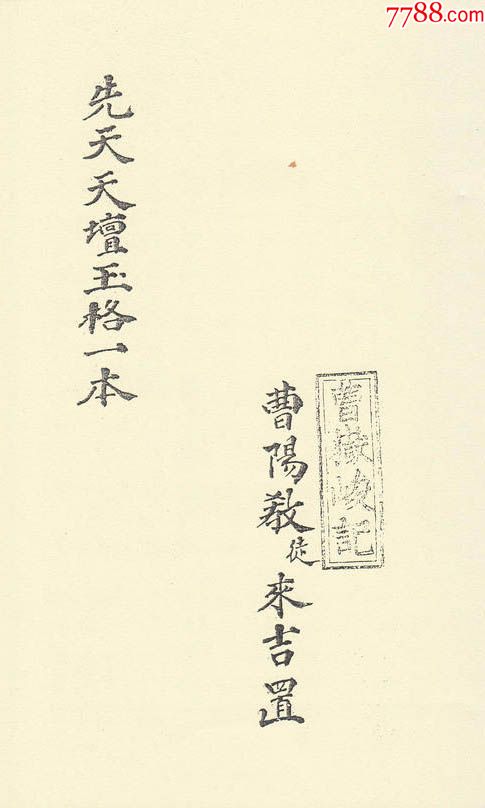 7788.com
先天天壇玉格一本
曹陽教徒來吉置
曹 記